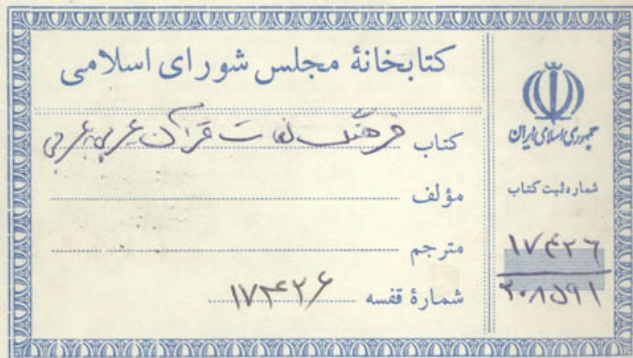 کتابخانهٔ مجلس شورای اسلامی
کتاب فرهنگ لغات قرآن عربی بعربی
مؤلف
مترجم
شمارهٔ قفسه ۱۷۴۲۶
جمهوری اسلامی ایران
شماره ثبت کتاب
۱۷۴۲۶
۲۰۸۵۹۱